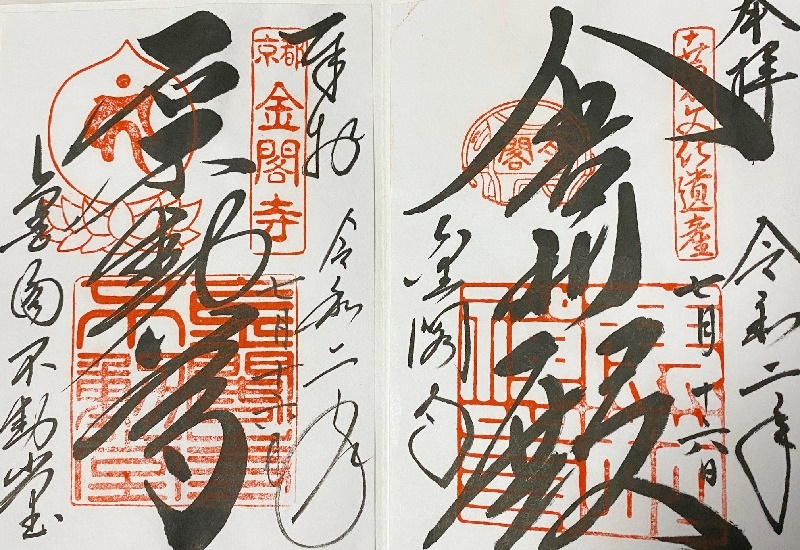 奉拝
世界文化遺産
令和二年
七月十六日
舎利殿
金閣寺
奉拝
京都
金閣寺
令和二年
七月十六日
石不動尊
不動堂